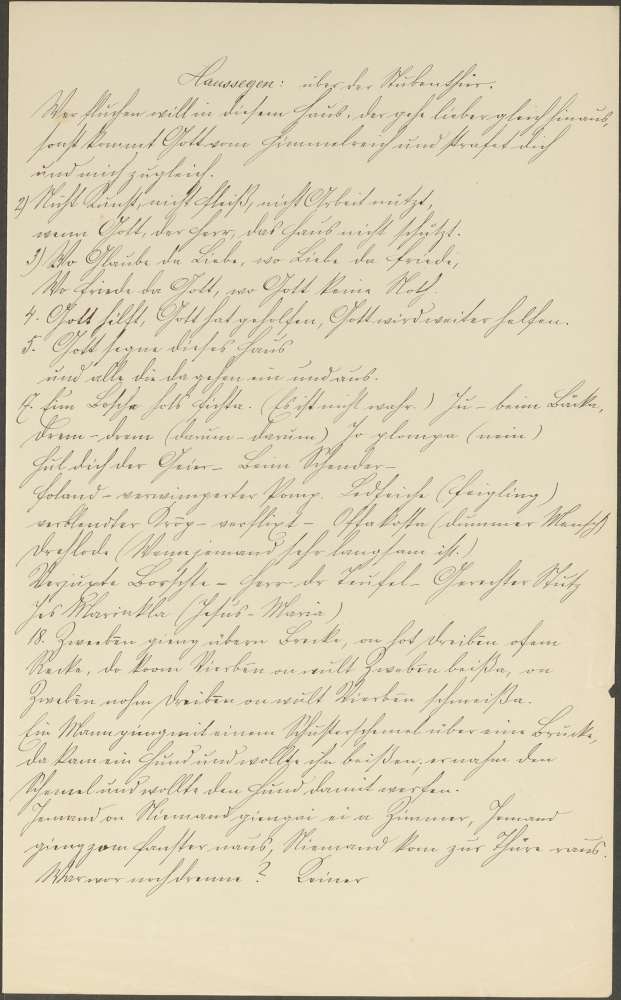 Haussegen: über der Stubenthür.
Wer fluchen will in diesem Haus, der gehe lieber gleich hinaus,
sonst kommt Gott vom Himmelreich und strafet dich
und mich zugleich.
2) Nicht Kunst, nicht Fleiß, nicht Arbeit nützt,
wenn Gott, der Herr, das Haus nicht schützt.
3) Wo Glaube da Liebe, wo Liebe da Friede,
Wo Friede da Gott, wo Gott keine Noth.
4. Gott hilft, Gott hat geholfen, Gott wird weiter helfen.
5. Gott segne dieses Haus
und alle die da gehen ein und aus.
7. Eim Boscha hots Lichta. (Es ist nicht wahr.) Ju - beim Bäcka,
drem - drem (darum - darum) Jo plompa (nein)
Hul dich der Geier - Beim Schender -
Foland - verwimperter Pomp. Ledteiche (Feigling)
verblendter Kröp - verflixt - Oftakosta (dummer Mensch)
Drehlode (Wenn jemand sehr langsam ist.)
Verjuxte Borschte - Herr dr Teufel - Gerechter Stutz
Jes Mariakla (Jesus - Maria)
18. Zweeben gieng übern Brecke, on hot Dreiben ofem
Recke, do koom Vierben on wullt Zweben beißa, on
Zweben nohm Dreiben on wullt Vierben schmeißa.
Ein Mann gieng mit einem Schusterschemel über eine Brücke,
da kam ein Hund und wollte ihn beißen, er nahm den
Schemel und wollte den Hund damit werfen.
Jemand on Niemand giengai ei a Zimmer, Jemand
gieng zom Fanster naus, Niemand kom zur Thüre raus.
War wor noch drenne? Keiner